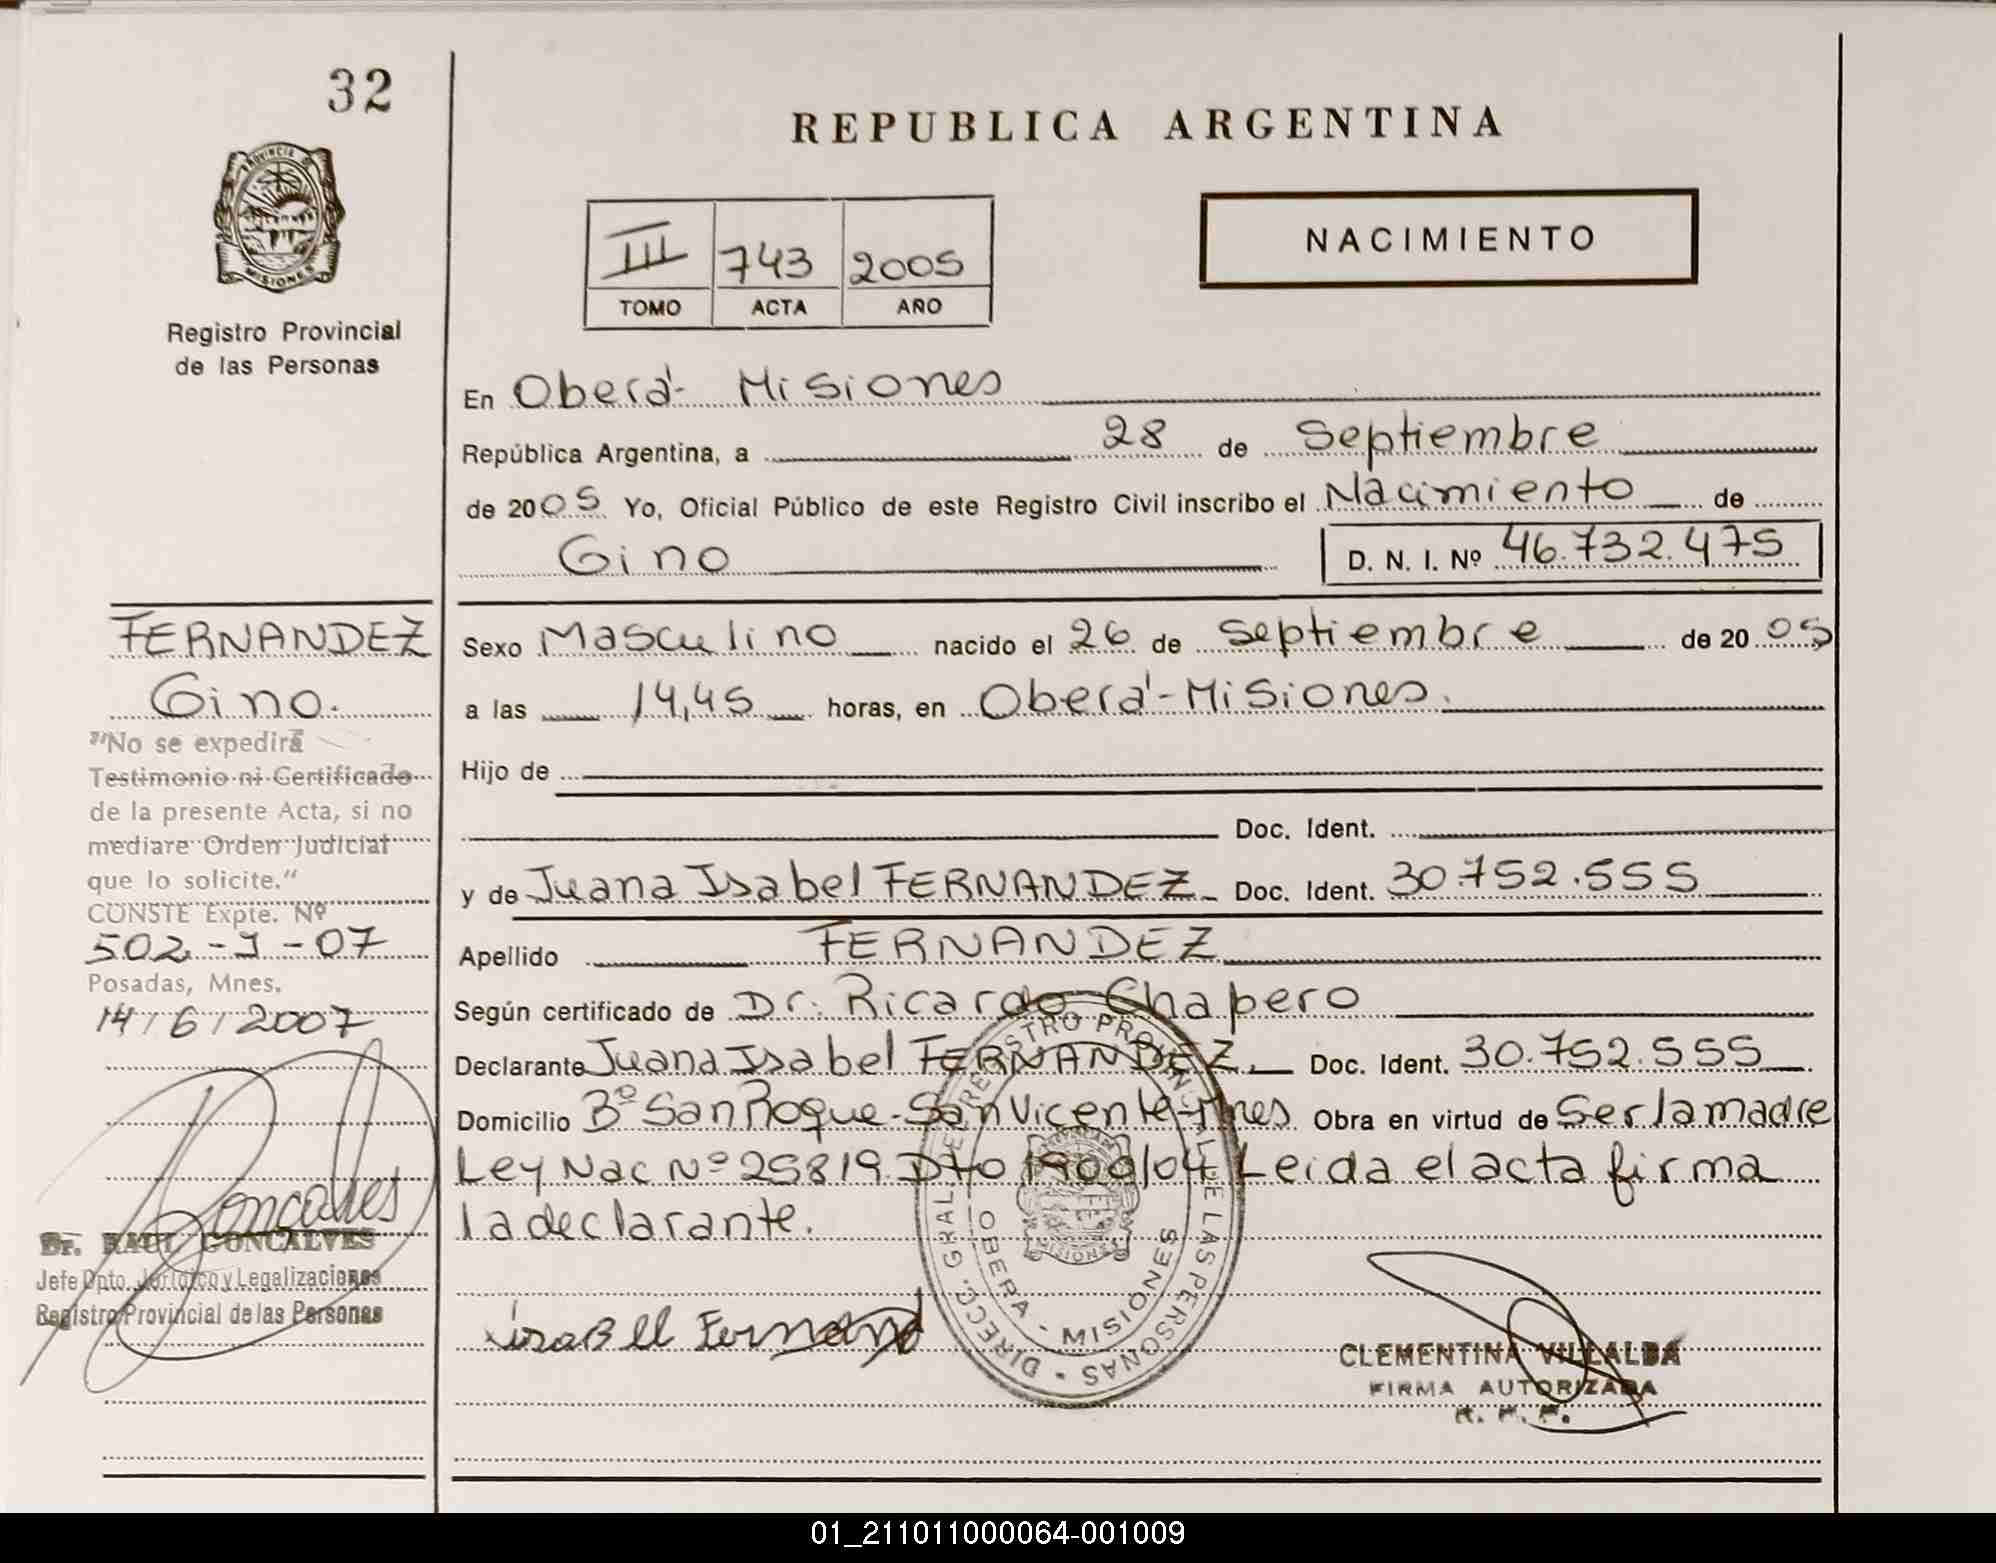 32
REPUBLICA ARGENTINA
PROVINCIA DE
MISIONES
Registro Provincial
de las Personas
III 743 2005
TOMO ACTA AÑO
NACIMIENTO
En Oberá- Misiones
República Argentina, a 28 de Septiembre
de 2005 Yo, Oficial Público de este Registro Civil inscribo el Nacimiento de
Gino D. N. I. Nº 46.732.475
FERNANDEZ
Gino.
"No se expedirá
Testimonio ni Certificado
de la presente Acta, si no
mediare Orden Judicial
que lo solicite."
CONSTE Expte. Nº
502 - J - 07
Posadas, Mnes.
14/6/2007
Goncalves
Dr. RAUL GONCALVES
Jefe Dpto. Jurídico y Legalizaciones
Registro Provincial de las Personas
Sexo Masculino nacido el 26 de Septiembre de 2005
a las 14,45 horas, en Oberá-Misiones.
Hijo de
Doc. Ident.
y de Juana Isabel FERNANDEZ Doc. Ident. 30.752.555
Apellido FERNANDEZ
Según certificado de Dr. Ricardo Chapero
Declarante Juana Isabel FERNANDEZ. Doc. Ident. 30.752.555
Domicilio Bº San Roque-San Vicente-Mnes Obra en virtud de Ser la madre
Ley Nac Nº 25819 Dto 1900/04 Leida el acta firma
la declarante.
DIRECC. GRAL. DE REGISTRO PROVINCIAL DE LAS PERSONAS
OBERA - MISIONES
MISIONES
isaBell Fernand
CLEMENTINA VILLALBA
FIRMA AUTORIZADA
R. P. P.
01_211011000064-001009